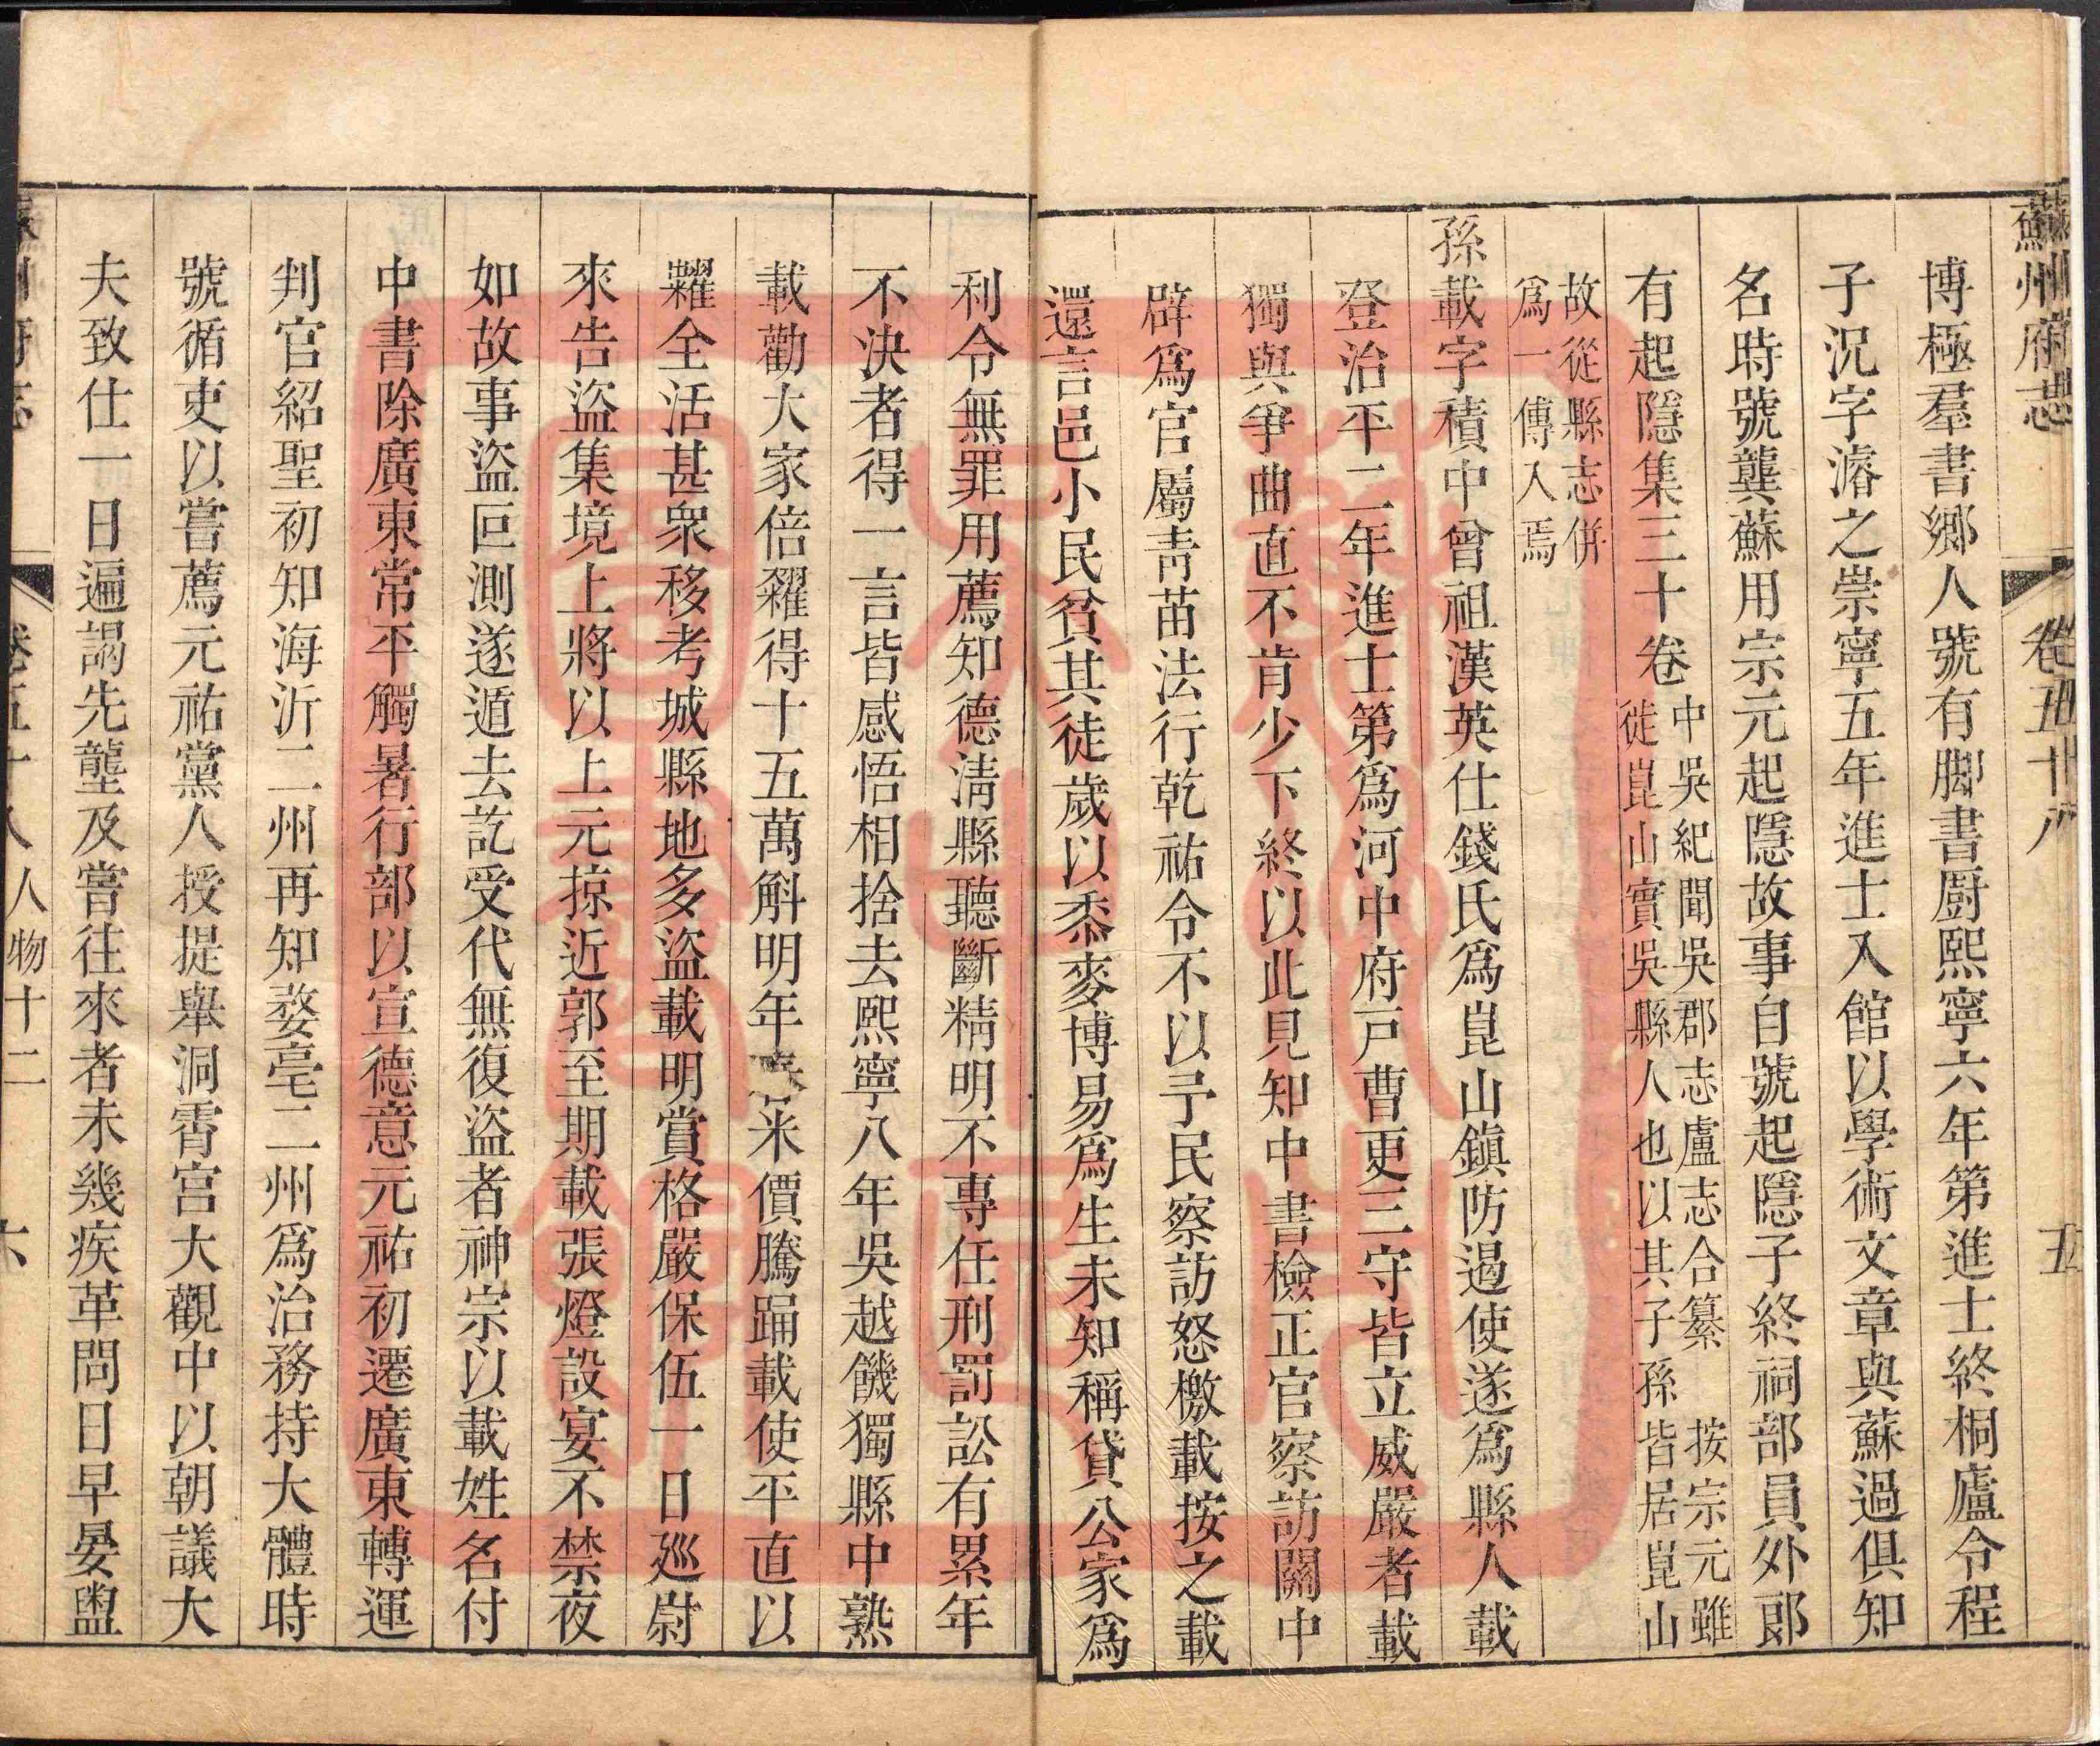 蘇州府志 卷五十八 五
博極羣書鄉人號有脚書厨熙寧六年第進士終桐廬令程
子況字濬之崇寧五年進士入館以學術文章與蘇過俱知
名時號龔蘇用宗元起隱故事自號起隱子終祠部員外郎
有起隱集三十卷
中吳紀聞吳郡志盧志合纂 按宗元雖
徙崑山實吳縣人也以其子孫皆居崑山
故從縣志併
爲一傳入焉
孫載字積中曾祖漢英仕錢氏爲崑山鎮防遏使遂爲縣人載
登治平二年進士第爲河中府戸曹更三守皆立威嚴者載
獨與爭曲直不肯少下終以此見知中書檢正官察訪關中
辟爲官屬靑苗法行乾祐令不以予民察訪怒檄載按之載
還言邑小民貧其徒歲以黍麥博易爲生未知稱貸公家爲
利令無罪用薦知德淸縣聽斷精明不專任刑罰訟有累年
不決者得一言皆感悟相捨去熙寧八年吳越饑獨縣中熟
載勸大家倍糴得十五萬斛明年米價騰踊載使平直以
糶全活甚衆移考城縣地多盜載明賞格嚴保伍一日廵尉
來告盜集境上將以上元掠近郭至期載張燈設宴不禁夜
如故事盜叵測遂遁去訖受代無復盜者神宗以載姓名付
中書除廣東常平觸暑行部以宣德意元祐初遷廣東轉運
判官紹聖初知海沂二州再知婺亳二州爲治務持大體時
號循吏以嘗薦元祐黨人授提舉洞霄宮大觀中以朝議大
夫致仕一日遍謁先壟及嘗往來者未幾疾革問日早晏盥
卷五十八 人物十二 六